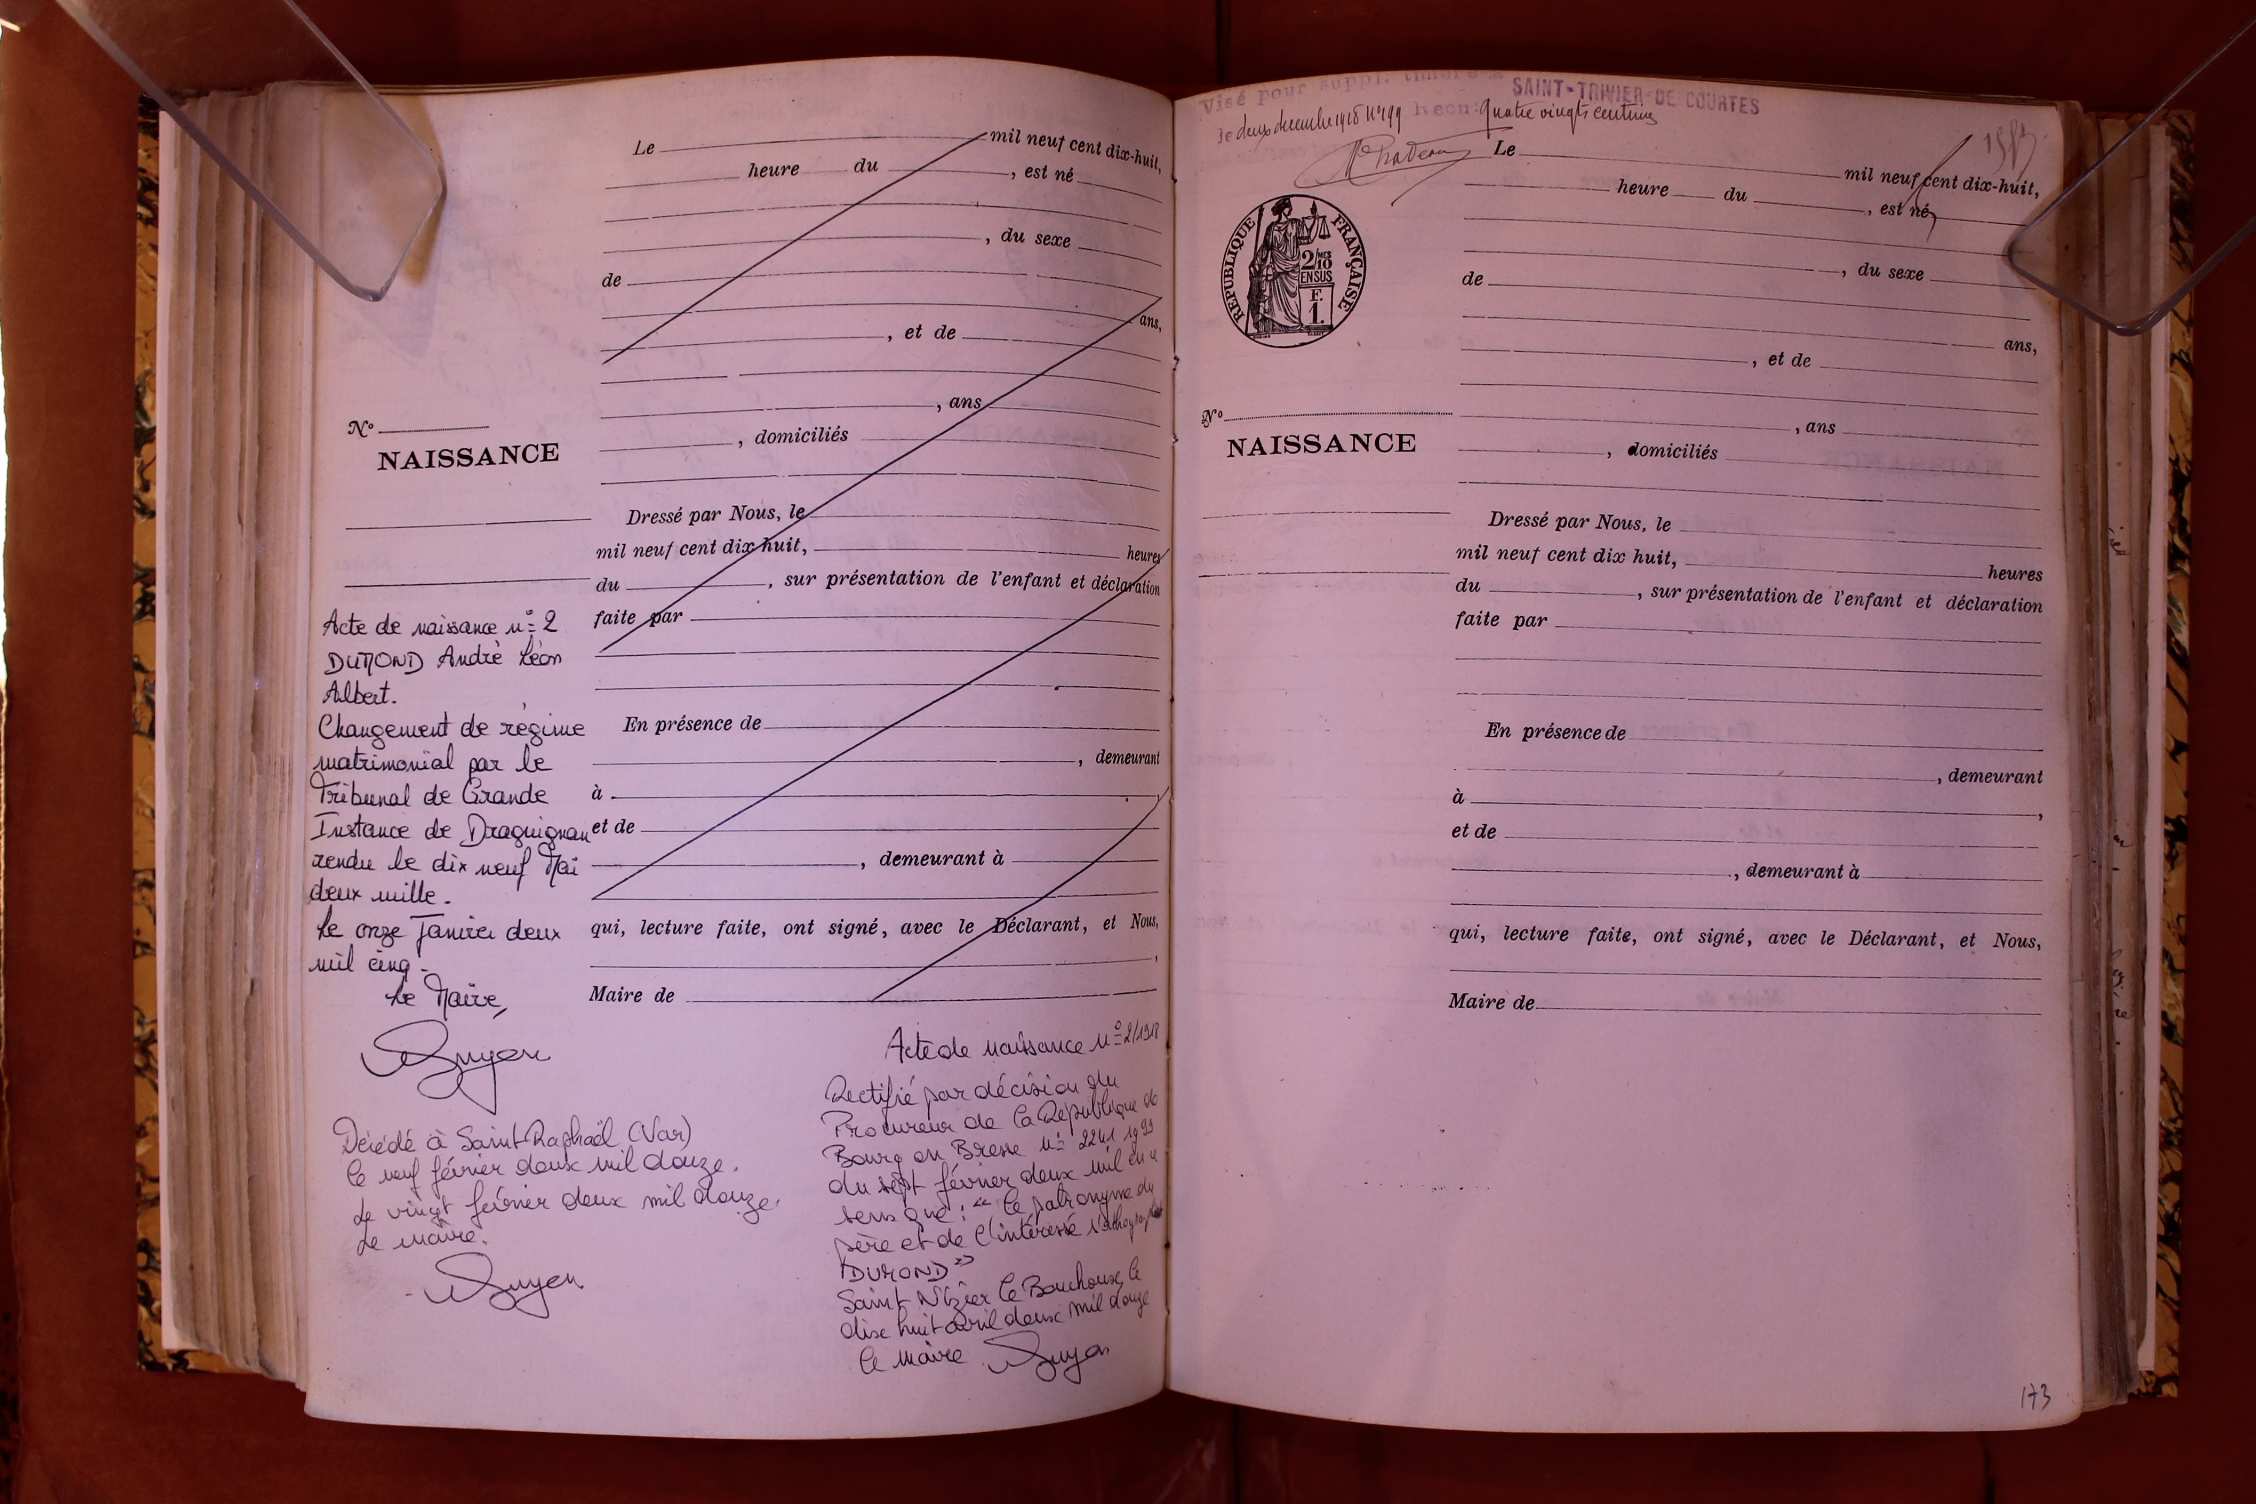 Le mil neuf cent dix-huit,
heure du , est né
, du sexe
de
ans,
, et de
, ans
, domiciliés
Nº
NAISSANCE
Dressé par Nous, le
mil neuf cent dix huit, heures
du , sur présentation de l'enfant et déclaration
faite par
En présence de
, demeurant
à ,
et de
, demeurant à
qui, lecture faite, ont signé, avec le Déclarant, et Nous,
,
Maire de
Acte de naissance nº 2
DUMOND André Léon
Albert.
Changement de régime
matrimonial par le
Tribunal de Grande
Instance de Draguignan
rendu le dix neuf Mai
deux mille.
Le onze Janvier deux
mil cinq.
Le Maire,
Décédé à Saint-Raphaël (Var)
le neuf février deux mil douze.
Le vingt février deux mil douze.
Le maire.
Acte de naissance nº 2/1918
Rectifié par décision du
Procureur de la République de
Bourg en Bresse nº 2241 1999
du sept février deux mil en
sens que : "le patronyme du
père et de l'intéressé s'orthographie
DUMOND"
Saint Nizier le Bouchoux, le
dix huit avril deux mil douze
le maire
Visé pour suppl. timbre à SAINT-TRIVIER-DE-COURTES
le deux decembre 1918 Nº 199 Reçu: quatre vingts centimes
REPUBLIQUE FRANÇAISE
2/10 MES
EN SUS
F.
1.
Le mil neuf cent dix-huit,
heure du , est né
, du sexe
de
ans,
, et de
, ans
, domiciliés
Nº
NAISSANCE
Dressé par Nous, le
mil neuf cent dix huit, heures
du , sur présentation de l'enfant et déclaration
faite par
En présence de
, demeurant
à ,
et de
, demeurant à
qui, lecture faite, ont signé, avec le Déclarant, et Nous,
Maire de
173